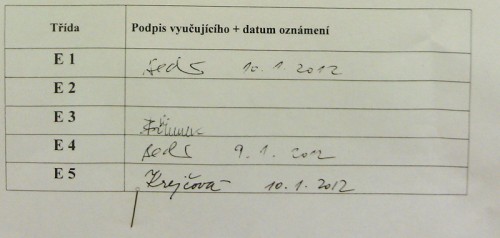 Třída Podpis vyučujícího + datum oznámení
E 1 10. 1. 2012
E 2
E 3
E 4 9. 1. 2012
E 5 Krejčová 10. 1. 2012